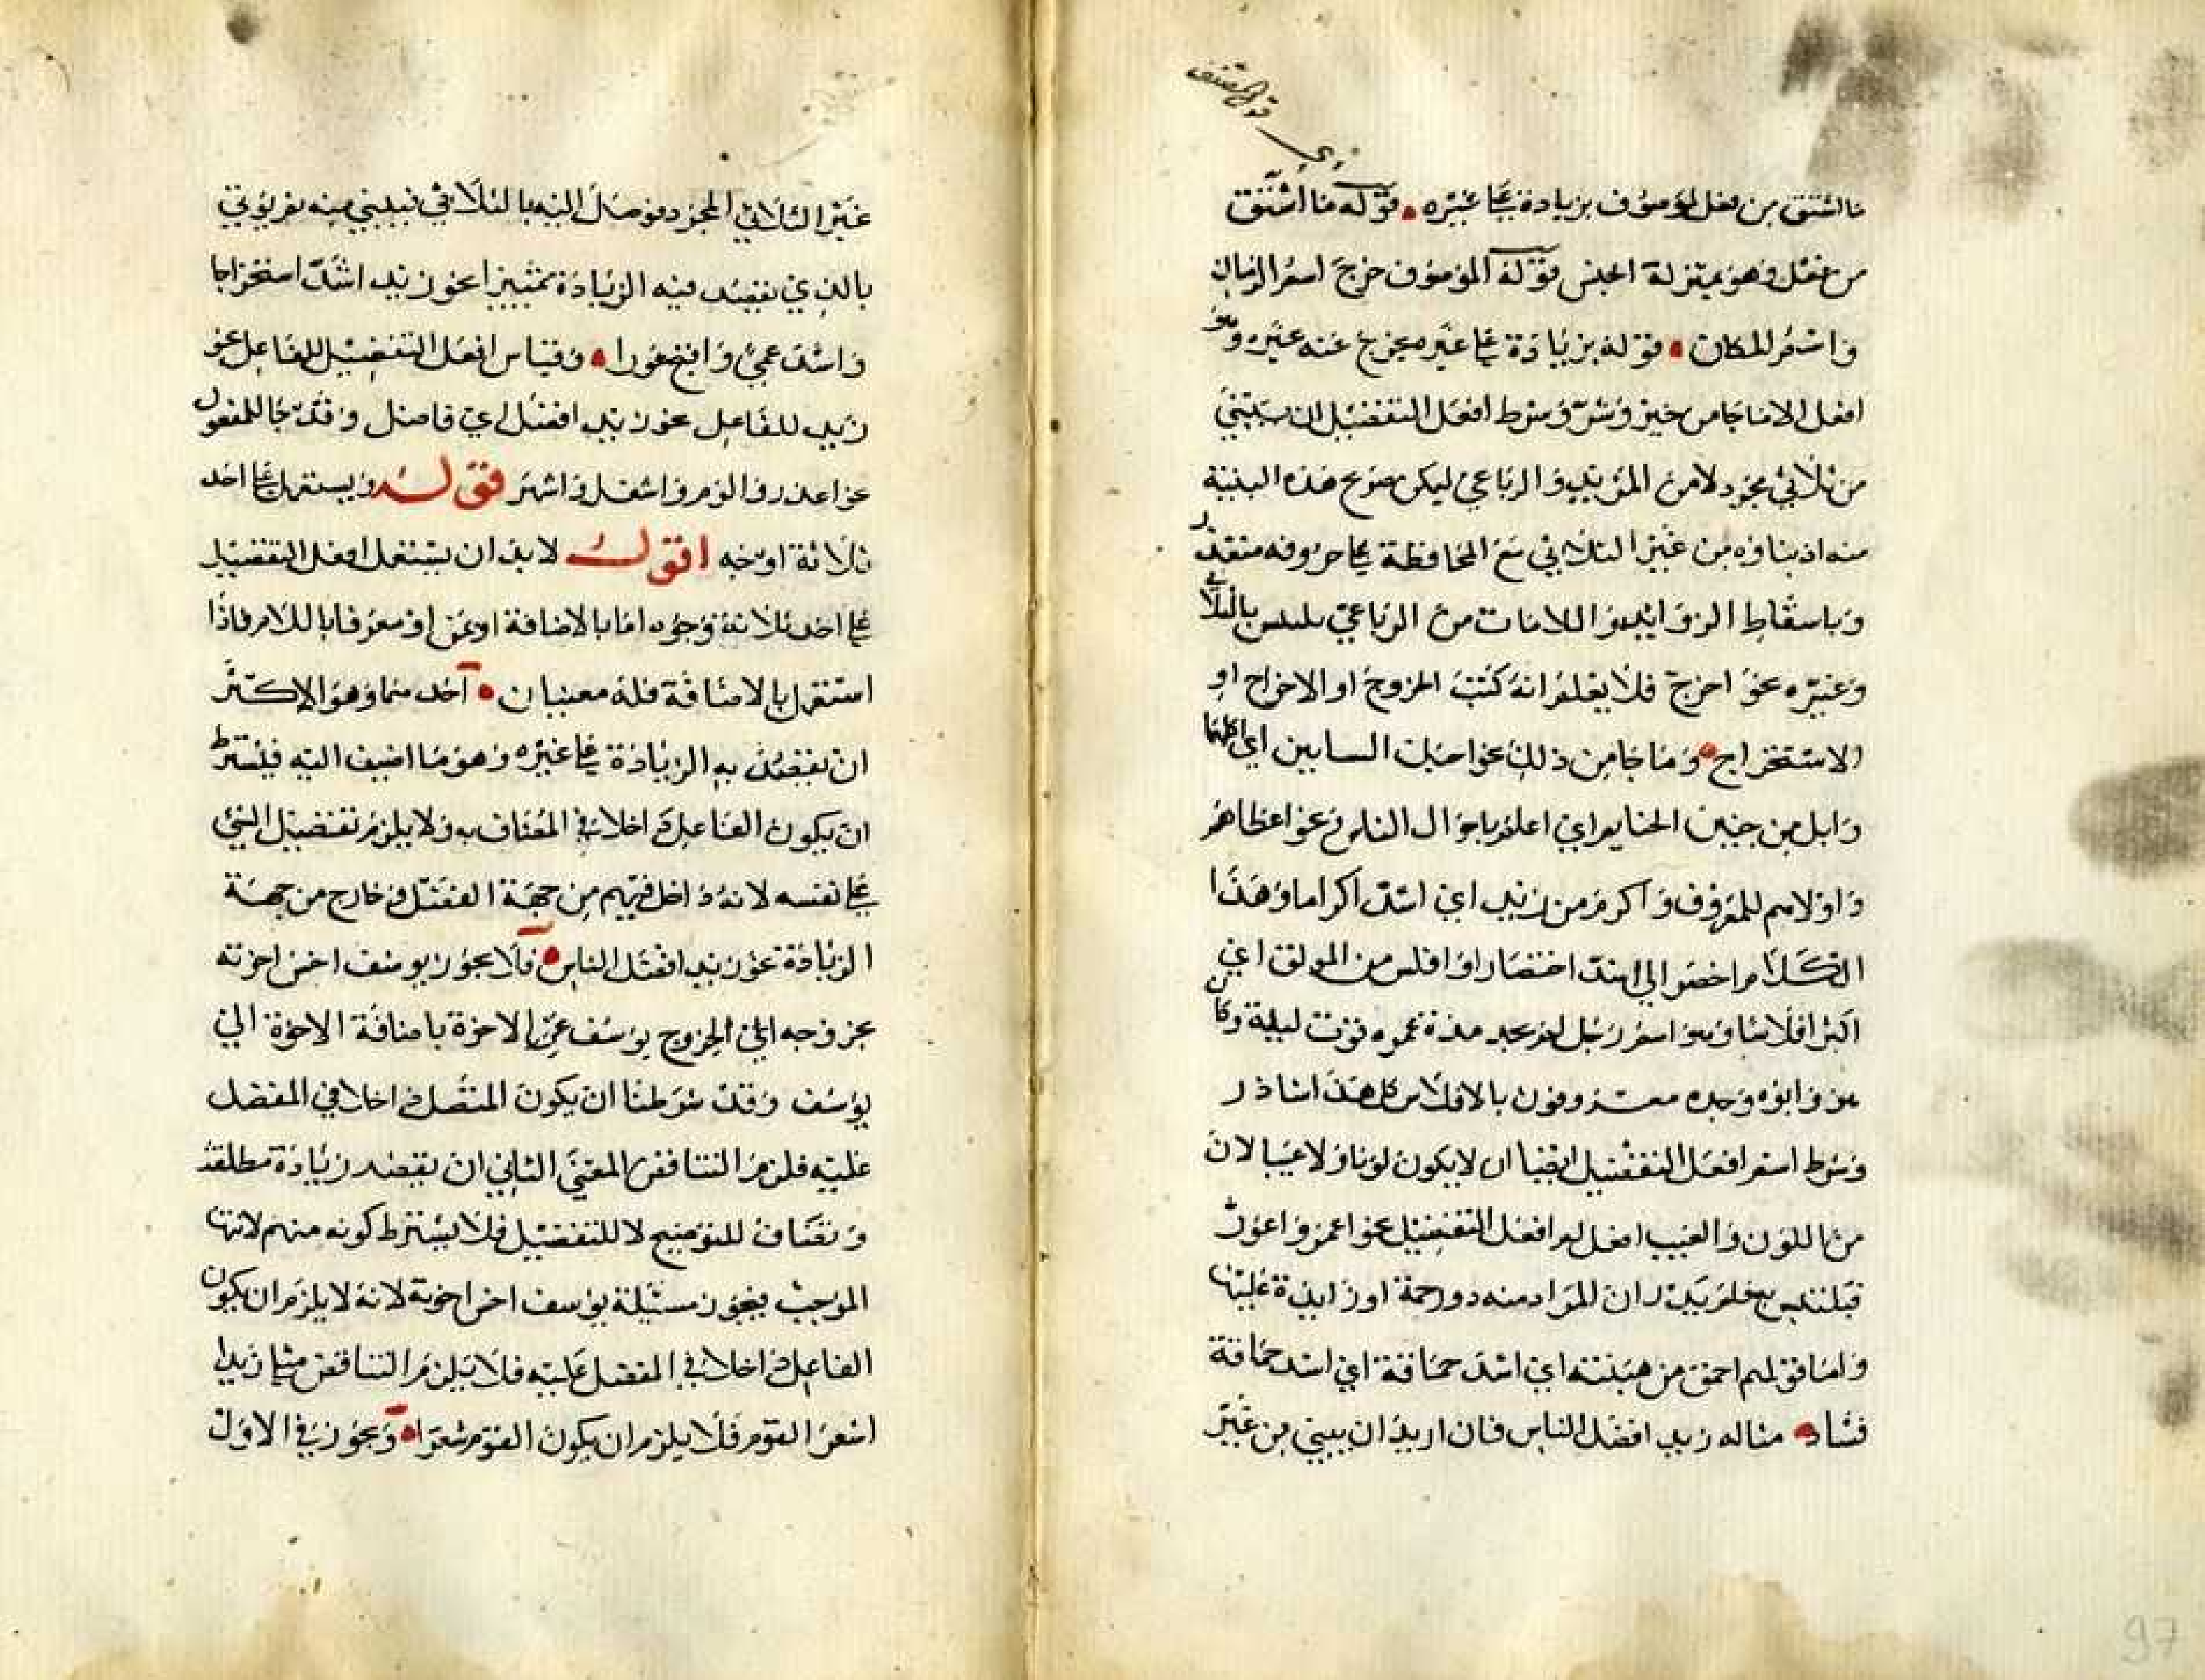 ما اشتق من فعل لموصوف بزيادة على غيره قوله ما اشتق
من فعل وهو بمنزلة الجنس قوله الموصوف خرج اسم الزمان
واسم المكان قوله بزيادة على غيره يخرج عنه غيره وهو
افعل الا ما جا من خير وشر وشرط افعل التفضيل ان يبنى
من ثلاثي مجرد لا من المزيد والرباعي ليكن صوغ هذه البنية
منه اذ بناوه من غير الثلاثي مع المحافظة على حروفه متعذر
وباسقاط الزوايد واللامات من الرباعي يلبس بالثلاثي
وغيره نحو اخرج فلا يعلم انه كثير الخروج او الاخراج او
الاستخراج وما جا من ذلك نحو احنك السابين اي اكلهما
وابل من حنين الحناتم اي اعلم باحوال الناس ونحو اعطاهم
واولاهم للمعروف واكرم من زيد اي اشد اكراما وهذا
الكلام اخصر اي اشد اختصارا وافلس من المولق اي
اكثر افلاسا وهو اسم رجل لم يجد مدة عمره قوت ليلة وكان
هو وابوه وجده معروفون بالافلاس كل هذا شاذ
وشرط اسم افعل التفضيل ايضا ان لا يكون لونا ولا عيبا لان
من اللون والعيب افعل لا افعل التفضيل نحو احمر واعور
فيلتبس فلم يدر ان المراد منه ذو حمرة او زايدة عليها
واما قولهم احمق من هبنقة اي اشد حماقة اي اشد حماقة
فشاذ مثاله زيد افضل الناس فان اريد ان يبنى من غير
غير الثلاثي المجرد فوصل اليه بالثلاثي فيبنى منه ثم يؤتى
بالذي تقصد فيه الزيادة بمتييزا نحو زيد اشد استخراجا
واشد عمى واقبح عورا وقياس افعل التفضيل للفاعل نحو
زيد للفاعل نحو زيد افضل اي فاضل وقد جا للمفعول
نحو اعذر والوم واشغل واشهر قوله ويستعمل على احد
ثلاثة اوجه اقول لا بد ان يستعمل افعل التفضيل
على احد ثلاثة وجوه اما بالاضافة او بمن او معرفا باللام فاذا
استعمل بالاضافة فله معنيان احدهما وهو الاكثر
ان تقصد به الزيادة على غيره وهو ما اضيف اليه فيشترط
ان يكون الفاعل داخلا في المضاف به ولا يلزم تفضيل الشي
على نفسه لانه داخل فيهم من جهة الفضل وخارج من جهة
الزيادة نحو زيد افضل الناس فلا يجوز يوسف احسن اخوته
بخروجه اي لخروج يوسف عن الاخوة باضافة الاخوة الى
يوسف وقد شرطنا ان يكون المتصل داخلا في المفضل
عليه فلزم التناقض المعنى الثاني ان تقصد زيادة مطلقة
وتضاف للتوضيح لا للتفضيل فلا يشترط كونه منهم لانتها
الموجب فيجوز مسئلة يوسف احسن اخوته لانه لا يلزم ان يكون
الفاعل داخلا في المفضل عليه فلا يلزم التناقض مثل زيد
اشعر القوم فلا يلزم ان يكون القوم شعرا ويجوز في الاول
97